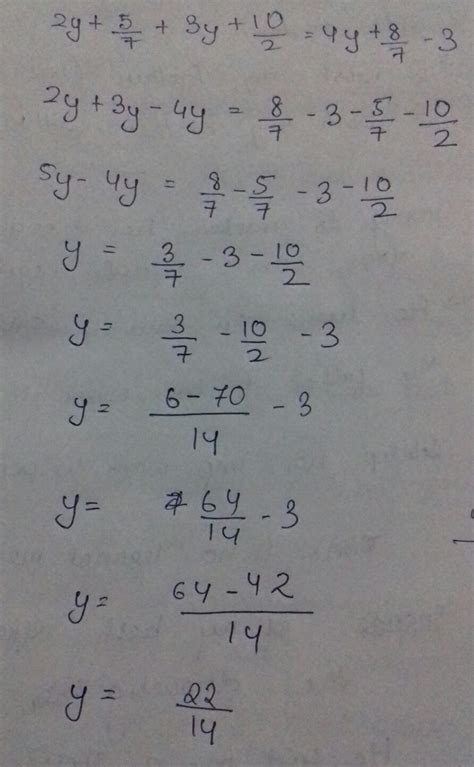 2y + 5/7 + 3y + 10/2 = 4y + 8/7 - 3
2y + 3y - 4y = 8/7 - 3 - 5/7 - 10/2
5y - 4y = 8/7 - 5/7 - 3 - 10/2
y = 3/7 - 3 - 10/2
y = 3/7 - 10/2 - 3
y = 6 - 70/14 - 3
y = 64/14 - 3
y = 64 - 42/14
y = 22/14